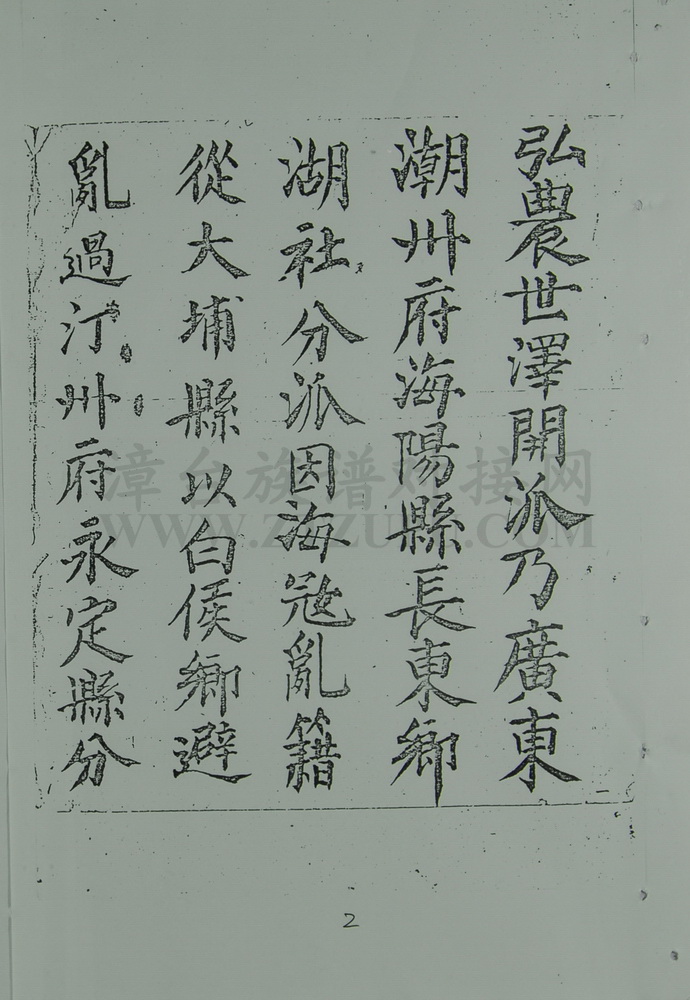 弘農世澤開派乃廣東
潮州府海陽縣長東鄉
湖社分派因海冦亂籍
從大埔縣以白侯鄉避
亂過汀州府永定縣分
漳台族谱对接网
2